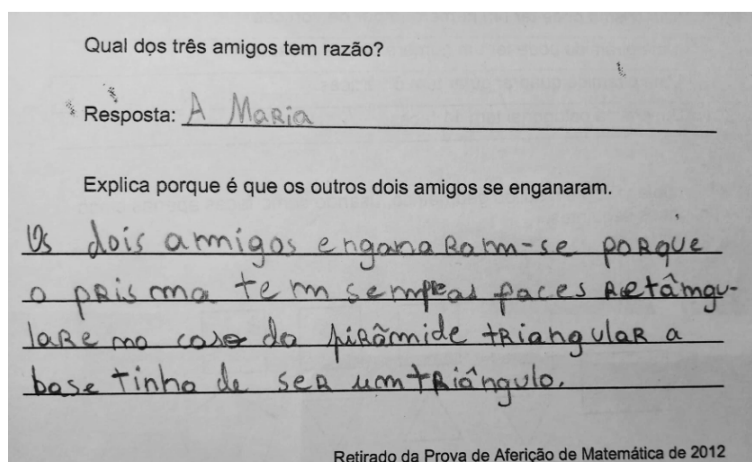 Qual dos três amigos tem razão?
Resposta: A Maria
Explica porque é que os outros dois amigos se enganaram.
Os dois amigos enganaram-se porque
o prisma tem sempre as faces retângu-
lare no caso da pirâmide triangular a
base tinha de ser um triângulo.
Retirado da Prova de Aferição de Matemática de 2012